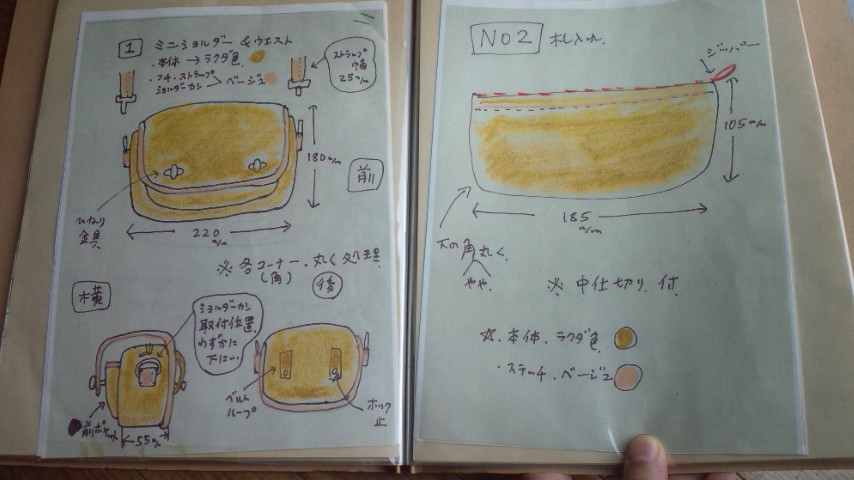 1 ミニショルダー & ウエスト
・本体 → ラクダ色
・フチ・ストラップ
ショルダーカン > ベージュ
ストラップ
巾
25m/m
180m/m
前
ひねり
金具
220
m/m
※ 各コーナー、丸く処理
(角)
後
横
ショルダーカン
取付位置
わずかに
下に…
ベルト
ループ
ホック
止
前ポケット
55m/m
NO2 札入れ
ジッパー
105m/m
185
m/m
下の角丸く
やや
※ 中仕切り付
☆・本体・ラクダ色
・ステッチ・ベージュ